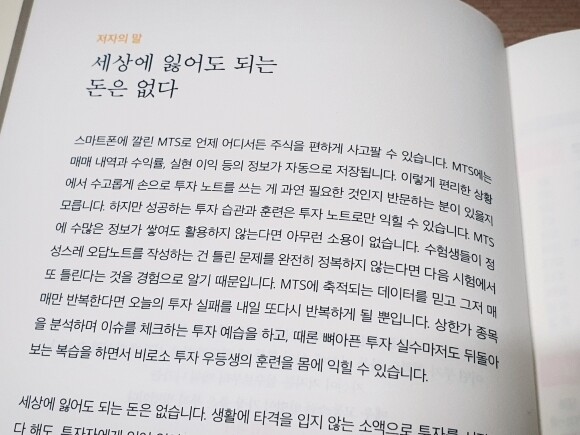 저자의 말
세상에 잃어도 되는
돈은 없다
스마트폰에 깔린 MTS로 언제 어디서든 주식을 편하게 사고팔 수 있습니다. MTS에는
매매 내역과 수익률, 실현 이익 등의 정보가 자동으로 저장됩니다. 이렇게 편리한 상황
에서 수고롭게 손으로 투자 노트를 쓰는 게 과연 필요한 것인지 반문하는 분이 있을지
모릅니다. 하지만 성공하는 투자 습관과 훈련은 투자 노트로만 익힐 수 있습니다. MTS
에 수많은 정보가 쌓여도 활용하지 않는다면 아무런 소용이 없습니다. 수험생들이 정
성스레 오답노트를 작성하는 건 틀린 문제를 완전히 정복하지 않는다면 다음 시험에서
또 틀린다는 것을 경험으로 알기 때문입니다. MTS에 축적되는 데이터를 믿고 그저 매
매만 반복한다면 오늘의 투자 실패를 내일 또다시 반복하게 될 뿐입니다. 상한가 종목
을 분석하며 이슈를 체크하는 투자 예습을 하고, 때론 뼈아픈 투자 실수마저도 뒤돌아
보는 복습을 하면서 비로소 투자 우등생의 훈련을 몸에 익힐 수 있습니다.
세상에 잃어도 되는 돈은 없습니다. 생활에 타격을 입지 않는 소액으로 투자를
다 해도, 투자자에게